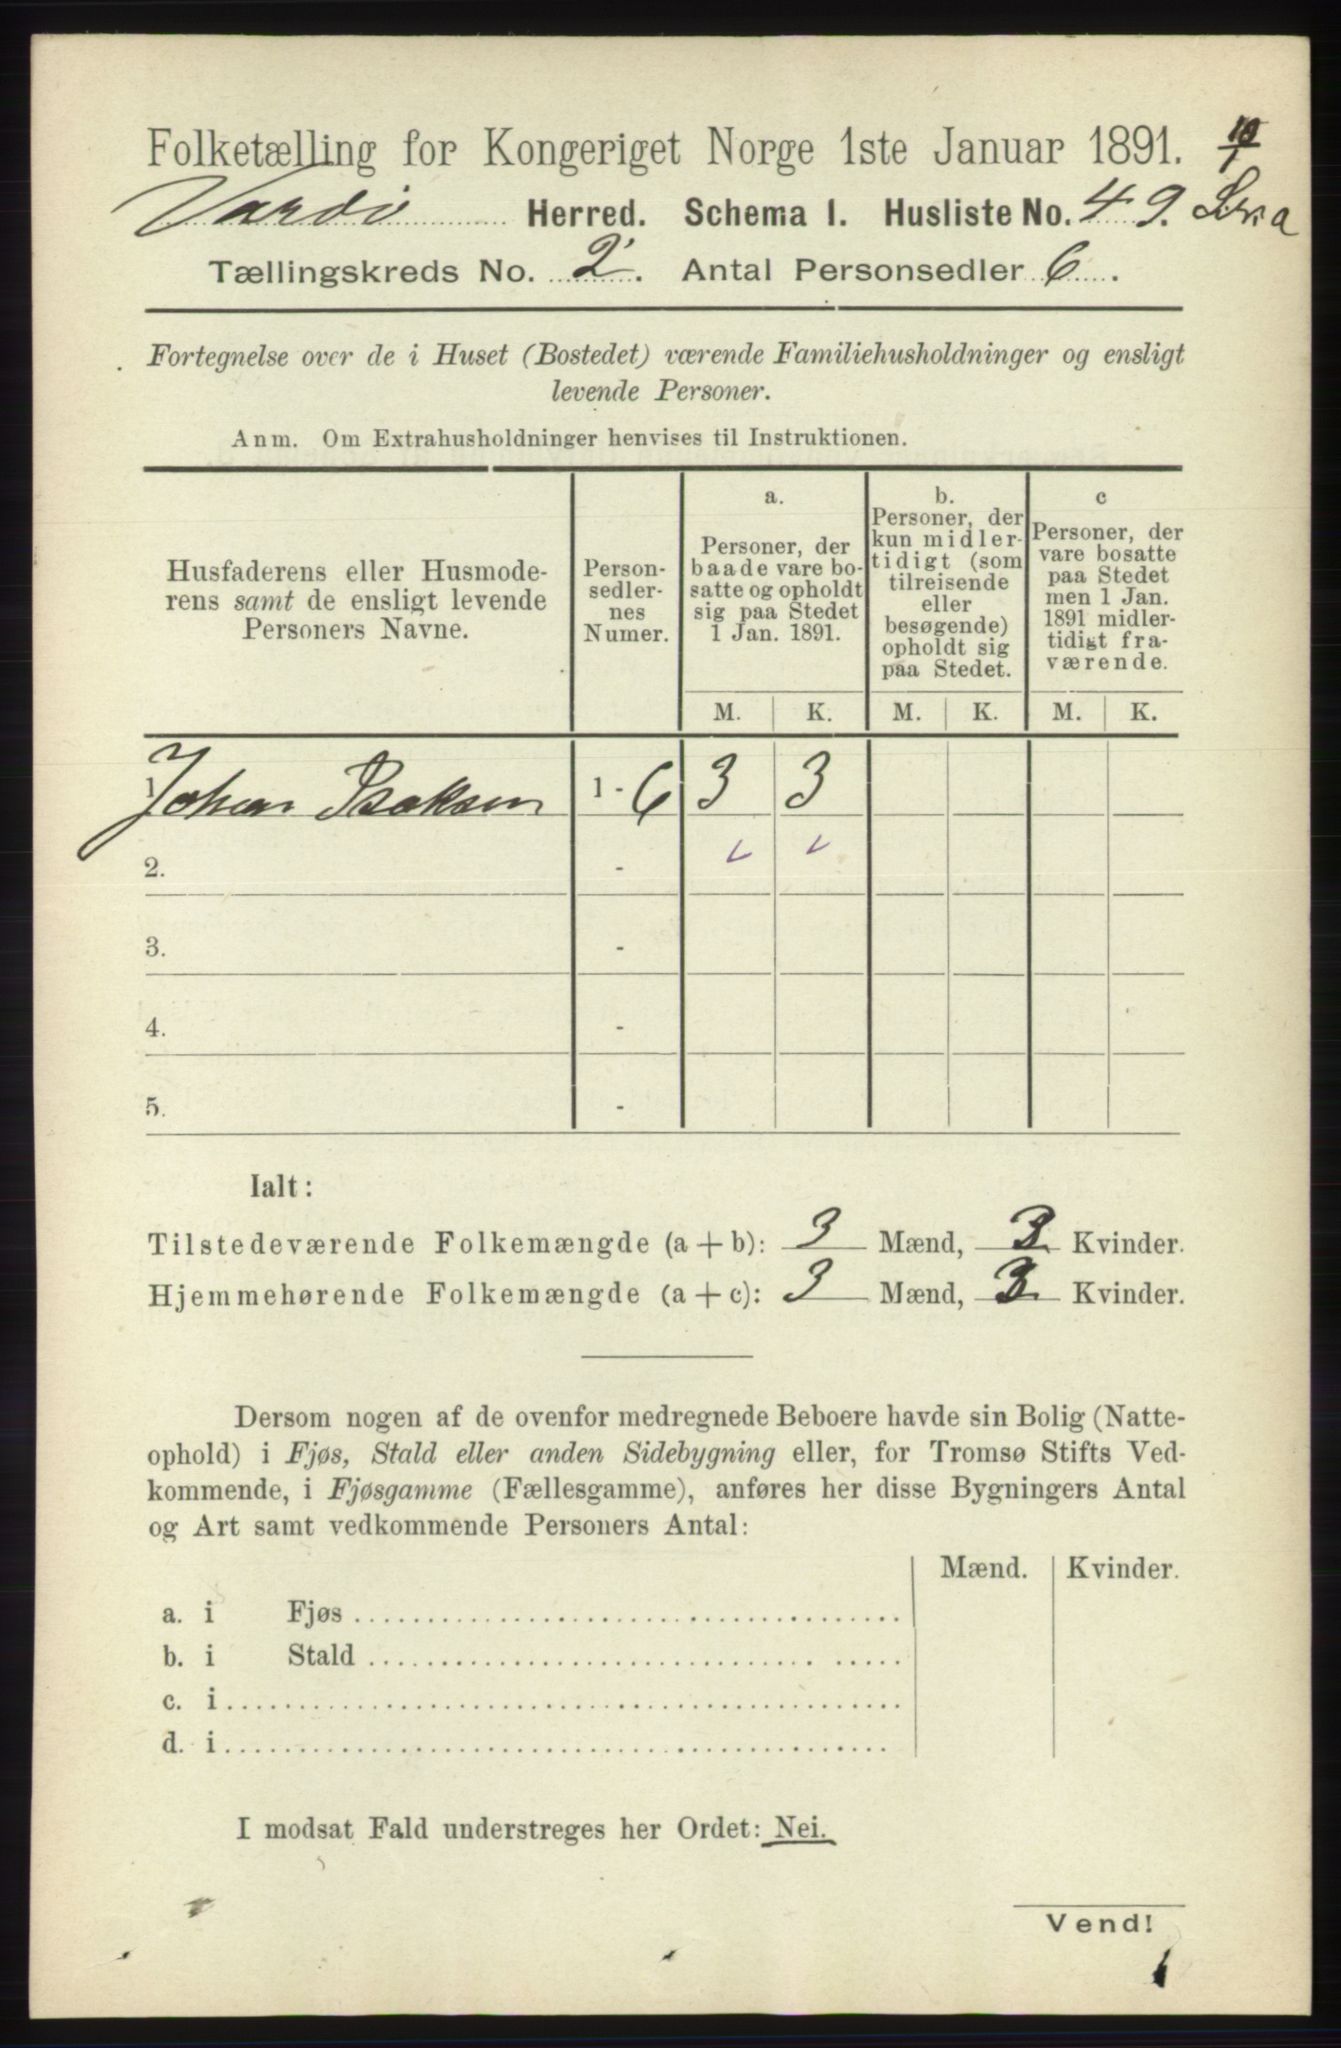 Folketælling for Kongeriget Norge 1ste Januar 1891. 10/1
Vardø Herred. Schema 1. Husliste No. 49.
Tællingskreds No. 2. Antal Personsedler 6.
Fortegnelse over de i Huset (Bostedet) værende Familiehusholdninger og ensligt
levende Personer.
Anm. Om Extrahusholdninger henvises til Instruktionen.
Husfaderens eller Husmode-
rens samt de ensligt levende
Personers Navne.
Person-
sedler-
nes
Numer.
a.
Personer, der
baade vare bo-
satte og opholdt
sig paa Stedet
1 Jan. 1891.
b.
Personer, der
kun midler-
tidigt (som
tilreisende
eller
besøgende)
opholdt sig
paa Stedet.
c
Personer, der
vare bosatte
paa Stedet
men 1 Jan.
1891 midler-
tidigt fra-
værende.
M. K. M. K. M. K.
1. Johan Isaksen 1 - 6 3 3
2. -
3. -
4. -
5. -
Ialt:
Tilstedeværende Folkemængde (a + b): 3 Mænd, 3 Kvinder.
Hjemmehørende Folkemængde (a + c): 3 Mænd, 3 Kvinder.
Dersom nogen af de ovenfor medregnede Beboere havde sin Bolig (Natte-
ophold) i Fjøs, Stald eller anden Sidebygning eller, for Tromsø Stifts Ved-
kommende, i Fjøsgamme (Fællesgamme), anføres her disse Bygningers Antal
og Art samt vedkommende Personers Antal:
Mænd. Kvinder.
a. i Fjøs
b. i Stald
c. i
d. i
I modsat Fald understreges her Ordet: Nei.
Vend!